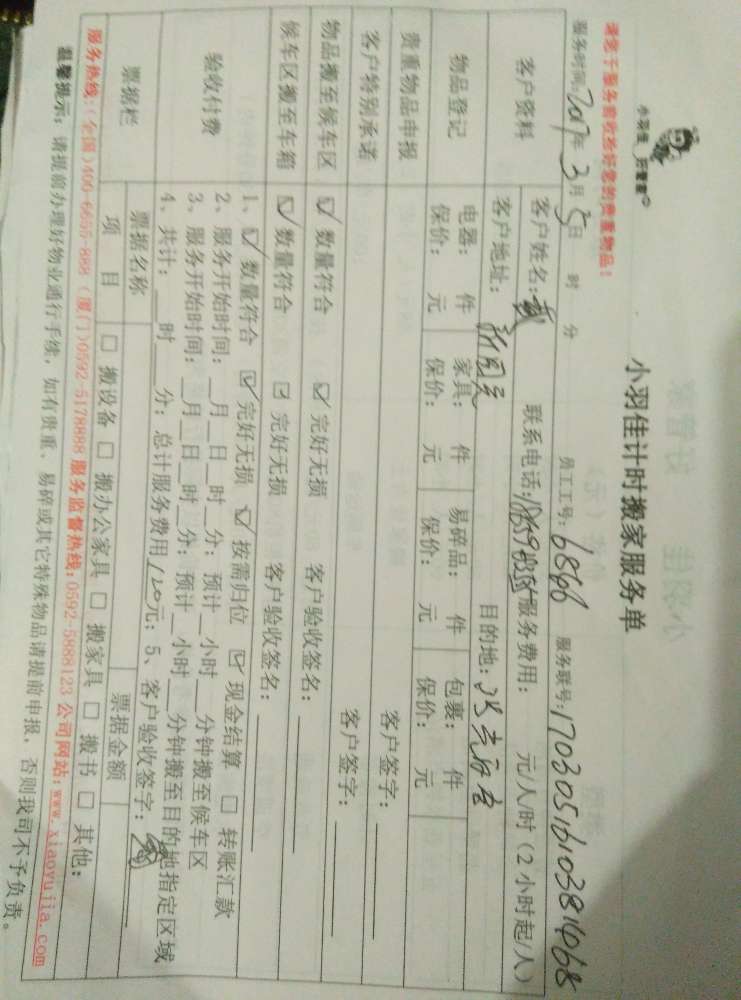 小羽佳 好管家
小羽佳计时搬家服务单
请您于服务前收拾好您的贵重物品！
服务时间:2017年3月5日 时 分 员工工号:6866 服务联号:17030516103814068
客户资料
客户姓名:戴 联系电话: 服务费用: 元/人/时(2小时起/人)
客户地址: 目的地:
物品登记
电器: 件 家具: 件 易碎品: 件 包裹: 件
保价: 元 保价: 元 保价: 元 保价: 元
贵重物品申报 客户签字:
客户特别承诺 客户签字:
物品搬至候车区 ☑ 数量符合 ☑ 完好无损 客户验收签名:
候车区搬至车箱 ☑ 数量符合 ☑ 完好无损 客户验收签名:
验收付费
1、☑ 数量符合 ☑ 完好无损 ☑ 按需归位 ☑ 现金结算 □ 转账汇款
2、服务开始时间:__月__日__时__分; 预计__小时__分钟搬至候车区
3、服务开始时间:__月__日__时__分; 预计__小时__分钟搬至目的地指定区域
4、共计:__时__分; 总计服务费用120元; 5、客户验收签字:
票据栏
票据名称 票据金额
项目 □ 搬设备 □ 搬办公家具 □ 搬家具 □ 搬书 □ 其他:
服务热线:(全国)400-6655-888 (厦门)0592-5178888 服务监督热线:0592-5888123 公司网站:www.xiaoyujia.com
温馨提示: 请提前办理好物业通行手续, 如有贵重、易碎或其它特殊物品请提前申报, 否则我司不予负责。